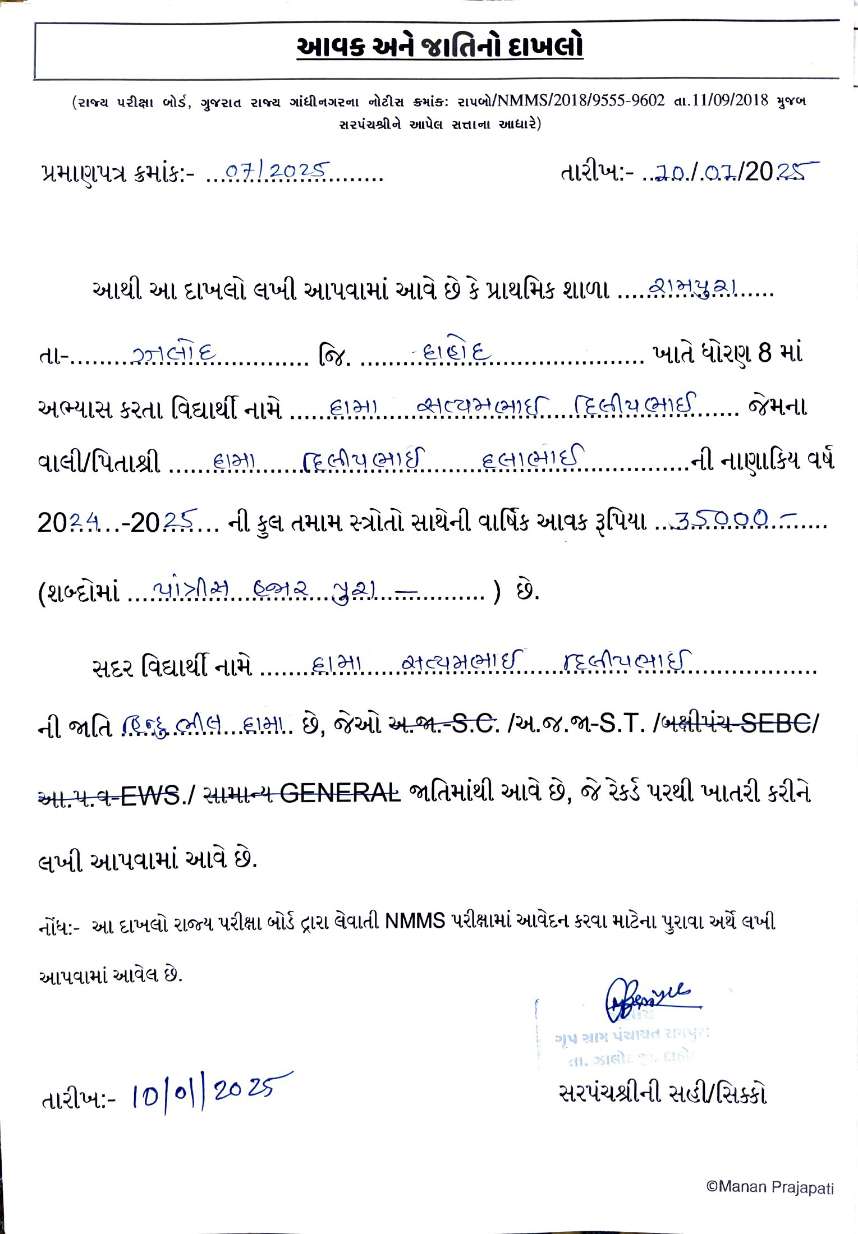 આવક અને જાતિનો દાખલો
(રાજ્ય પરીક્ષા બોર્ડ, ગુજરાત રાજ્ય ગાંધીનગરના નોટીસ ક્રમાંક: રાપબો/NMMS/2018/9555-9602 તા.11/09/2018 મુજબ
સરપંચશ્રીને આપેલ સત્તાના આધારે)
પ્રમાણપત્ર ક્રમાંક:- ...07/2025.......... તારીખ:- ..10./.01/2025
આથી આ દાખલો લખી આપવામાં આવે છે કે પ્રાથમિક શાળા .....રામપુરા......
તા-.........ઝાલોદ............... જિ. ........દાહોદ...................... ખાતે ધોરણ 8 માં
અભ્યાસ કરતા વિદ્યાર્થી નામે ......ડામા સત્યમભાઈ દિલીપભાઈ....... જેમના
વાલી/પિતાશ્રી ......ડામા દિલીપભાઈ હલાભાઈ...............ની નાણાકિય વર્ષ
2024...-2025.... ની કુલ તમામ સ્ત્રોતો સાથેની વાર્ષિક આવક રૂપિયા ...35000.-....
(શબ્દોમાં ....પાંત્રીસ હજાર પુરા —......... ) છે.
સદર વિદ્યાર્થી નામે ........ડામા સત્યમભાઈ દિલીપભાઈ..................
ની જાતિ હિન્દુ ભીલ ડામા. છે, જેઓ અ.જા.-S.C. /અ.જ.જા-S.T. /બક્ષીપંચ-SEBC/
આ.પ.વ-EWS./ સામાન્ય GENERAL જાતિમાંથી આવે છે, જે રેકર્ડ પરથી ખાતરી કરીને
લખી આપવામાં આવે છે.
નોંધ:- આ દાખલો રાજ્ય પરીક્ષા બોર્ડ દ્વારા લેવાતી NMMS પરીક્ષામાં આવેદન કરવા માટેના પુરાવા અર્થે લખી
આપવામાં આવેલ છે.
ગૃપ ગ્રામ પંચાયત રામપુરા
તા. ઝાલોદ જી. દાહોદ
તારીખ:- 10/01/2025 સરપંચશ્રીની સહી/સિક્કો
©Manan Prajapati